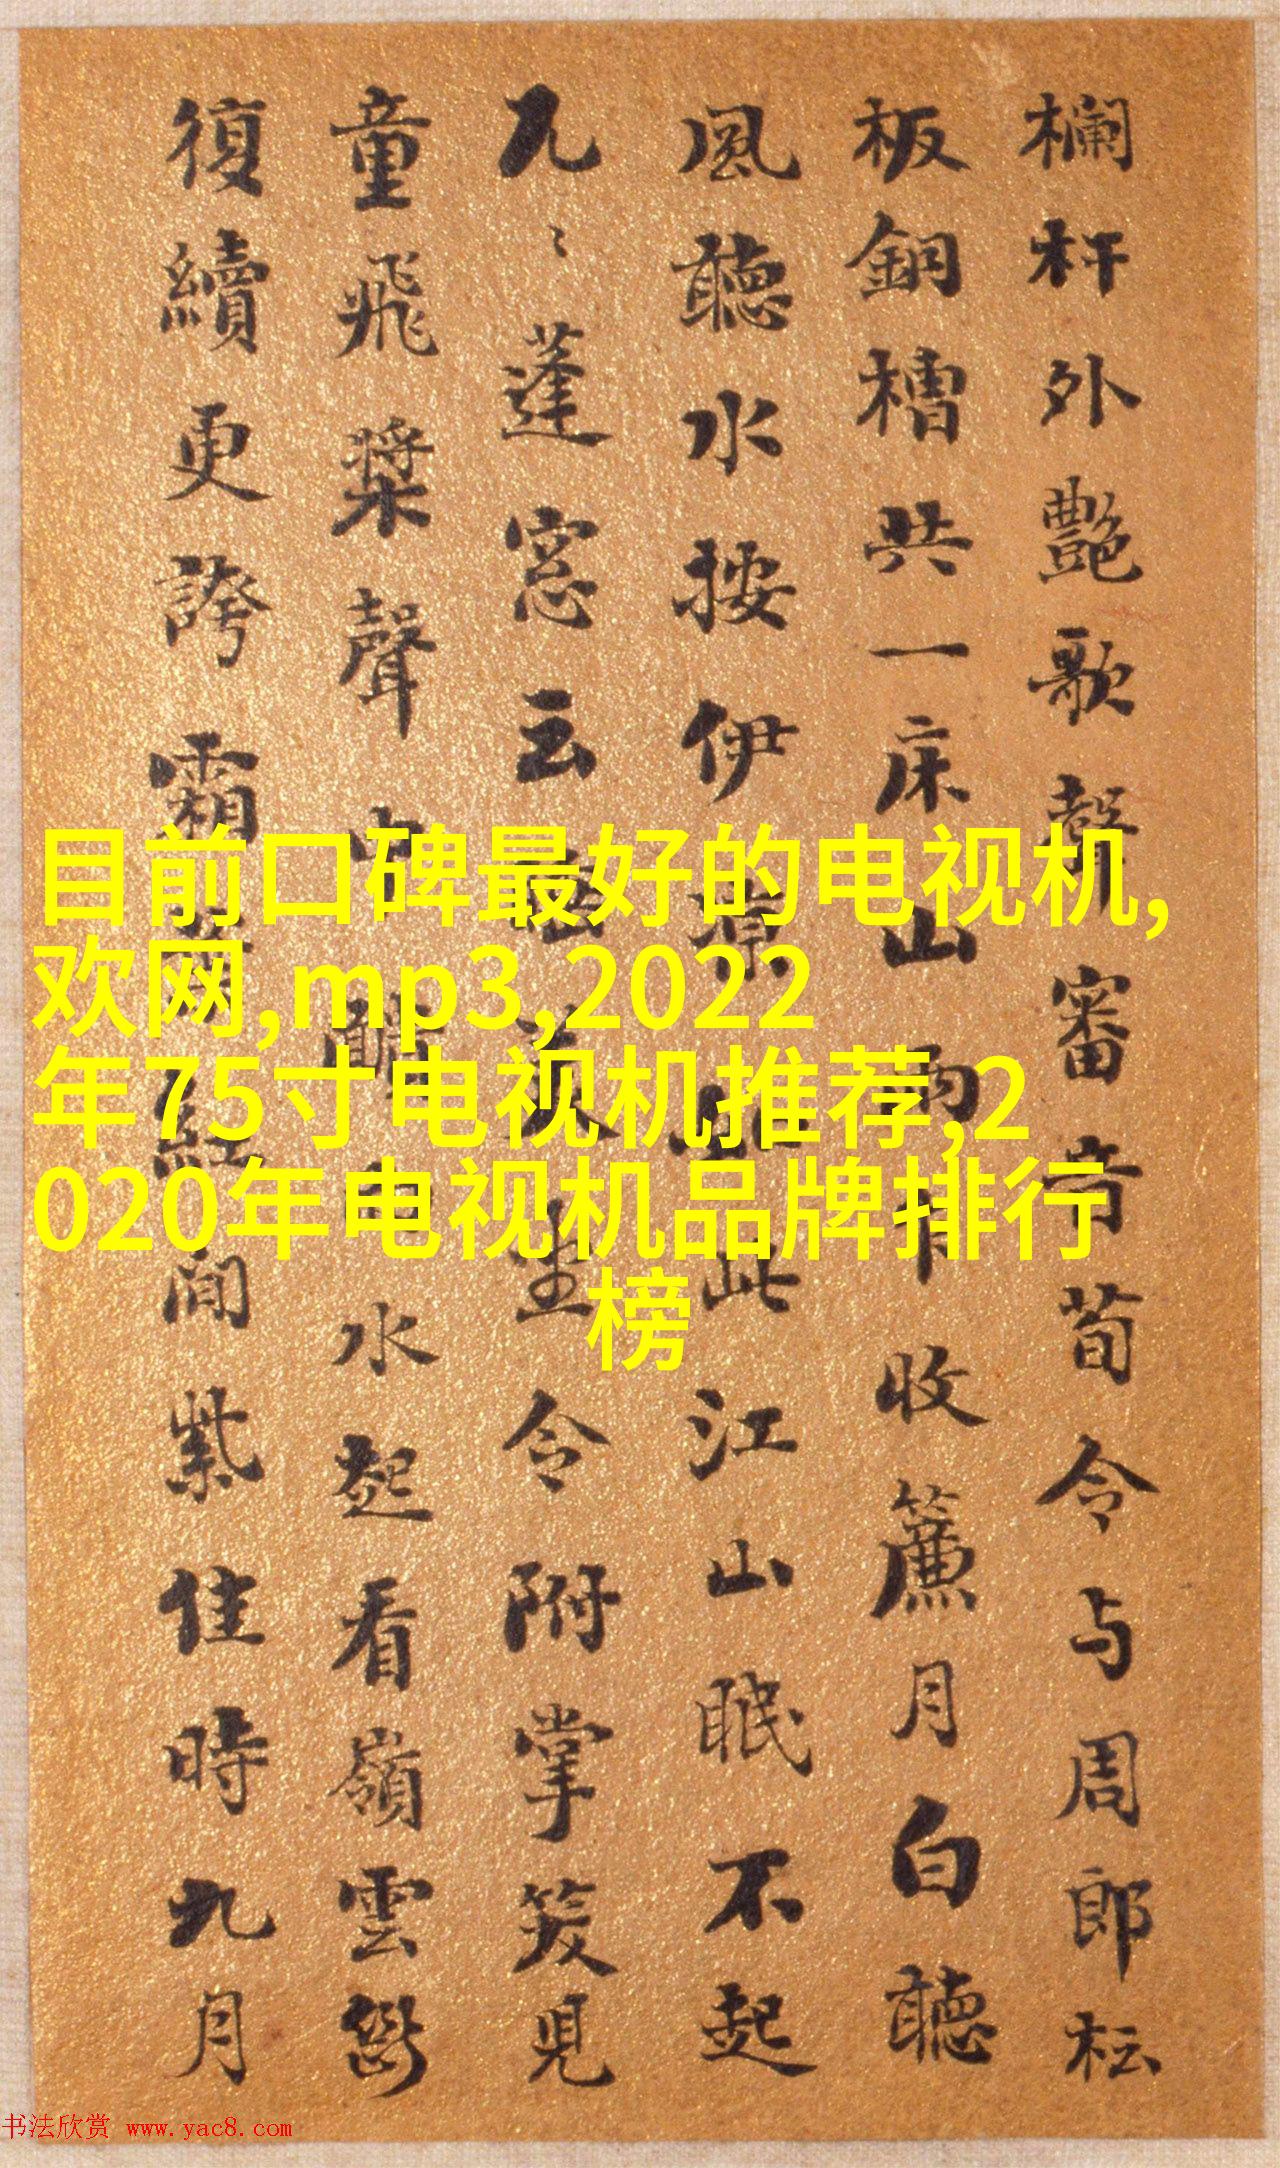 欄杆外艷歌聲審音荀令与周郎枟
板銅槽共一床山雨收簾月白聽
風聽水按伊凉此江山眠不起
兀〻蓬窓云坐令附掌笑見
童飛槳聲中水起看嶺雲
復續更誇霜葉紅間紫佳時九月
目前口碑最好的电视机,
欢网,mp3,2022
年75寸电视机推荐,2
020年电视机品牌排行
榜
书法欣赏 www.yac8.com